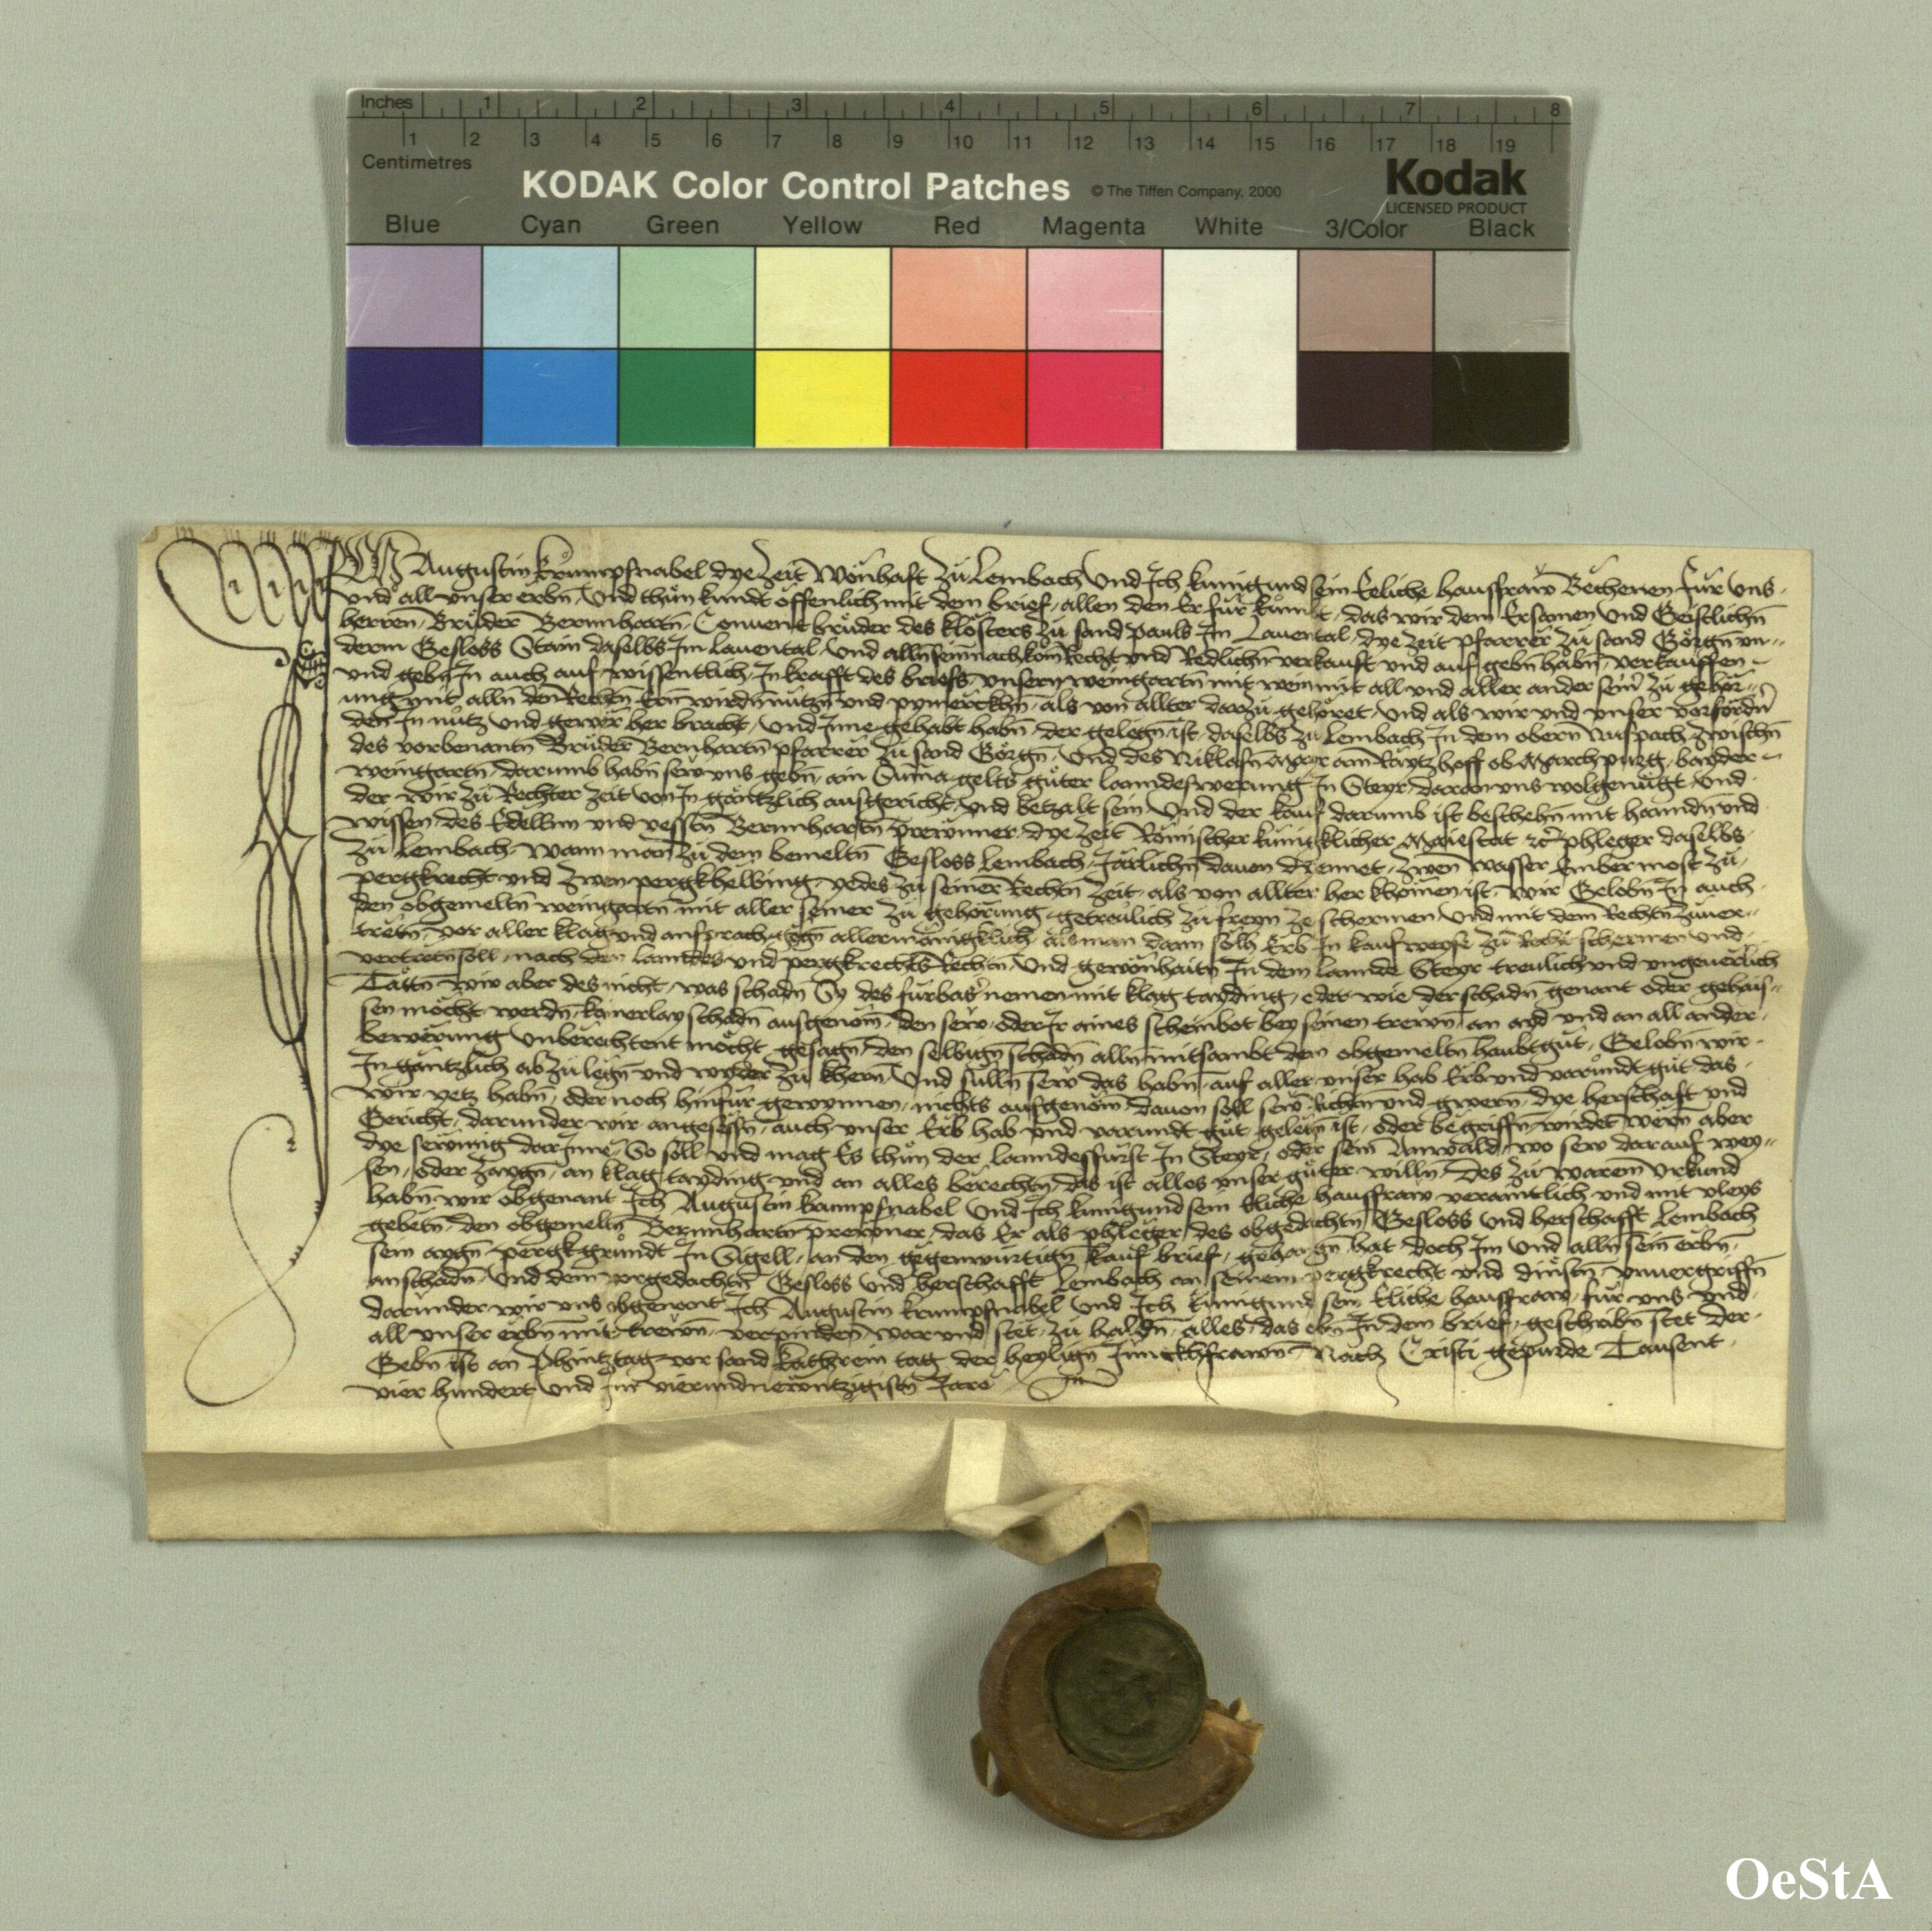 Inches 1 2 3 4 5 6 7 8
1 2 3 4 5 6 7 8 9 10 11 12 13 14 15 16 17 18 19
Centimetres
KODAK Color Control Patches © The Tiffen Company, 2000 Kodak
LICENSED PRODUCT
Blue Cyan Green Yellow Red Magenta White 3/Color Black
Ich Augustin krumpsnabel dye Zeit Wonhaft zu Lembach Und Ich kunigund sein Eeliche haussfraw Bechenen fur uns
und all unser erbn Und thun kundt offenlich mit dem brief allen den Er fur kumbt das wir dem Ersamen Und Geistlichn
herren Bruder Bernnhartn Convent bruder des klosters zu sand pauls Im Lavental dye Zeit pfarrer zu sand Görgn un
derm Gesloss Stain daselbs Im lavental Und alln sein nachkom Recht und Redlichn verkauft und auf gebn habn verkauffen
und gebn In auch auf wissentlich In krafft des briefs unsern weingartn mit wein mit all und aller ander sein zu gehor
ung mit alln den Rechtn Ern wirdn nutzn und pymerckhn als von allter darzu gehoret und als wir und unser vorfordn
den In nutz und gewer her bracht und Inne gehabt habn der gelegn ist daselbs zu Lembach In dem obern Nuspach zwischn
des vorbenantn Bruder Bernhartn pfarrer zu sand Görgn Und des Niklasn Mayr am Raytzhoff ob Marchpurg bayder
weingartn darumb habn sew uns gebn ain Suma gelts guter lanndeswerung In Steyr daran uns wolgenugt Und
der wir zu Rechter zeit von In gantzlich ausgericht und betzalt sein Und der kauf darumb ist beschehn mit hanndn und
wissen des Edellnn und vesstn Bernnhartn prewnner dye zeit Römischer kunigklicher Maiestat etc phleger daselbs
zu Lembach Wann man zu dem bemeltn Gesloss Lembach Jarlichn davon diennet zwen wasser Ember most zu
pergkrecht und zwen pergkhelbing yedes zu seiner Rechtn zeit als von allter her khomen ist Wir Gelobn In auch
den obgemeltn weingartn mit aller seiner zu gehorung getreulich zu freyn ze schermen Und mit dem Rechtn zuver
tretn vor aller klag und ansprach gegn allermanigklich als man dann solh Erb In kaufweyse zu Recht schermen und
vertretn soll nach den lanndes und pergkrechts Rechtn Und gewonhaitn In dem lannde Steyr treulich und ungeverlich
Tattn wir aber des nicht was schadn Sy des furbas nemen mit klag tayding oder wie der schadn genant oder gehais
sen mocht werdn kainerlay schadn ausgenom den sew oder Ir aines scheinbot bey seinen trewn an ayd und an all ander
bewerung Unberechtent mocht gesagn den selbign schadn alln mitsambt dem obgemeltn haubtgut Gelobn wir
In gantzlich ab zu legn und wyder zu khern Und sulln sew das habn auf aller unser hab Erb und varundt gut das
wir yetz habn oder noch hinfur gewynnen nichts ausgenom davon soll sew richtn und gwern dye herschaft und
Gericht darunder wir angesessn auch unser Erb hab und varundt gut gelegn ist oder begriffn wirdet wern aber
dye sewmig darInne So soll und mag Es thun der lanndesfurst In Steyr oder sein Anwald wo sew darauf wey
sen oder zaygn an klag tayding und an alles berechtn das ist alles unser guter willn Des zu warem Urkund
habn wir obgenant Ich Augustin krumpsnabel Und Ich kunigund sein Eliche haussfraw veramtlich und mit vleys
gebetn den obgemeltn Bernnhartn prewnner das Er als phleger des obgedachtn Gesloss und herschafft Lembach
sein aygn pergkgrundt In Sigell an den gegenwurtign kauf brief gehangn hat doch Im Und alln sein erbn
an schadn Und dem vorgedachtn Gesloss und herschafft Lembach an seinem pergkrecht und dinstn unvergriffn
darunder wir uns obgenant Ich Augustin krumpsnabel Und Ich kunigund sein Eliche haussfraw fur uns und
all unser erbn mit trewn verpinden war und stet zu haldn alles das obn In dem brief geschribn stet Der
Gebn ist an Phintztag vor sand kathrein tag der heylign Junckhfrawn Nach Cristi gepurde Tausent
vier hundert und Im vierundnewntzigistn Jare
OeStA